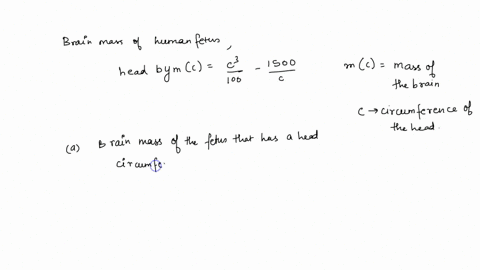 Brain mass of human fetus,
head by m(c) = c³/100 - 1500/c
m(c) = mass of
the brain
c → circumference of
the head.
(a) Brain mass of the fetus that has a head
circumfe